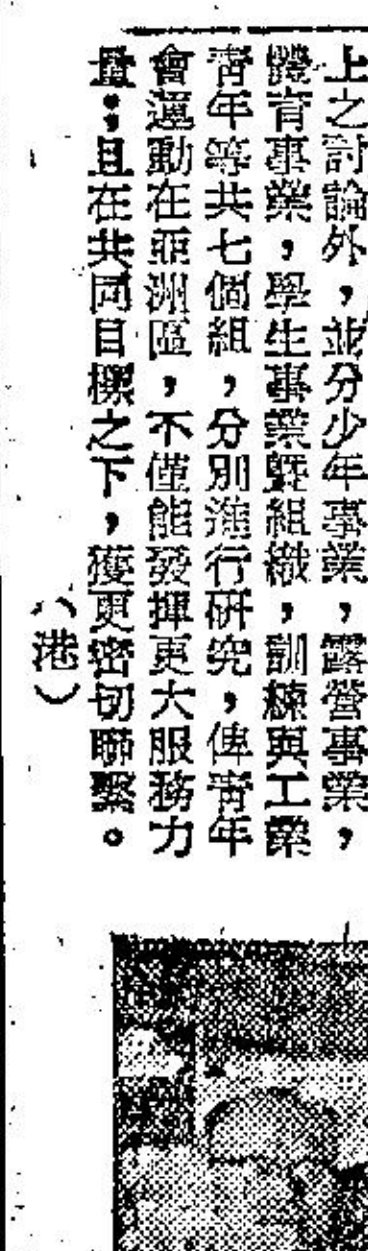 上之討論外，並分少年事業，露營事業，
體育事業，學生事業暨組織，訓練與工業
青年等共七個組，分別進行研究，俾青年
會運動在亞洲區，不僅能發揮更大服務力
量；且在共同目標之下，獲更密切聯繫。
（港）